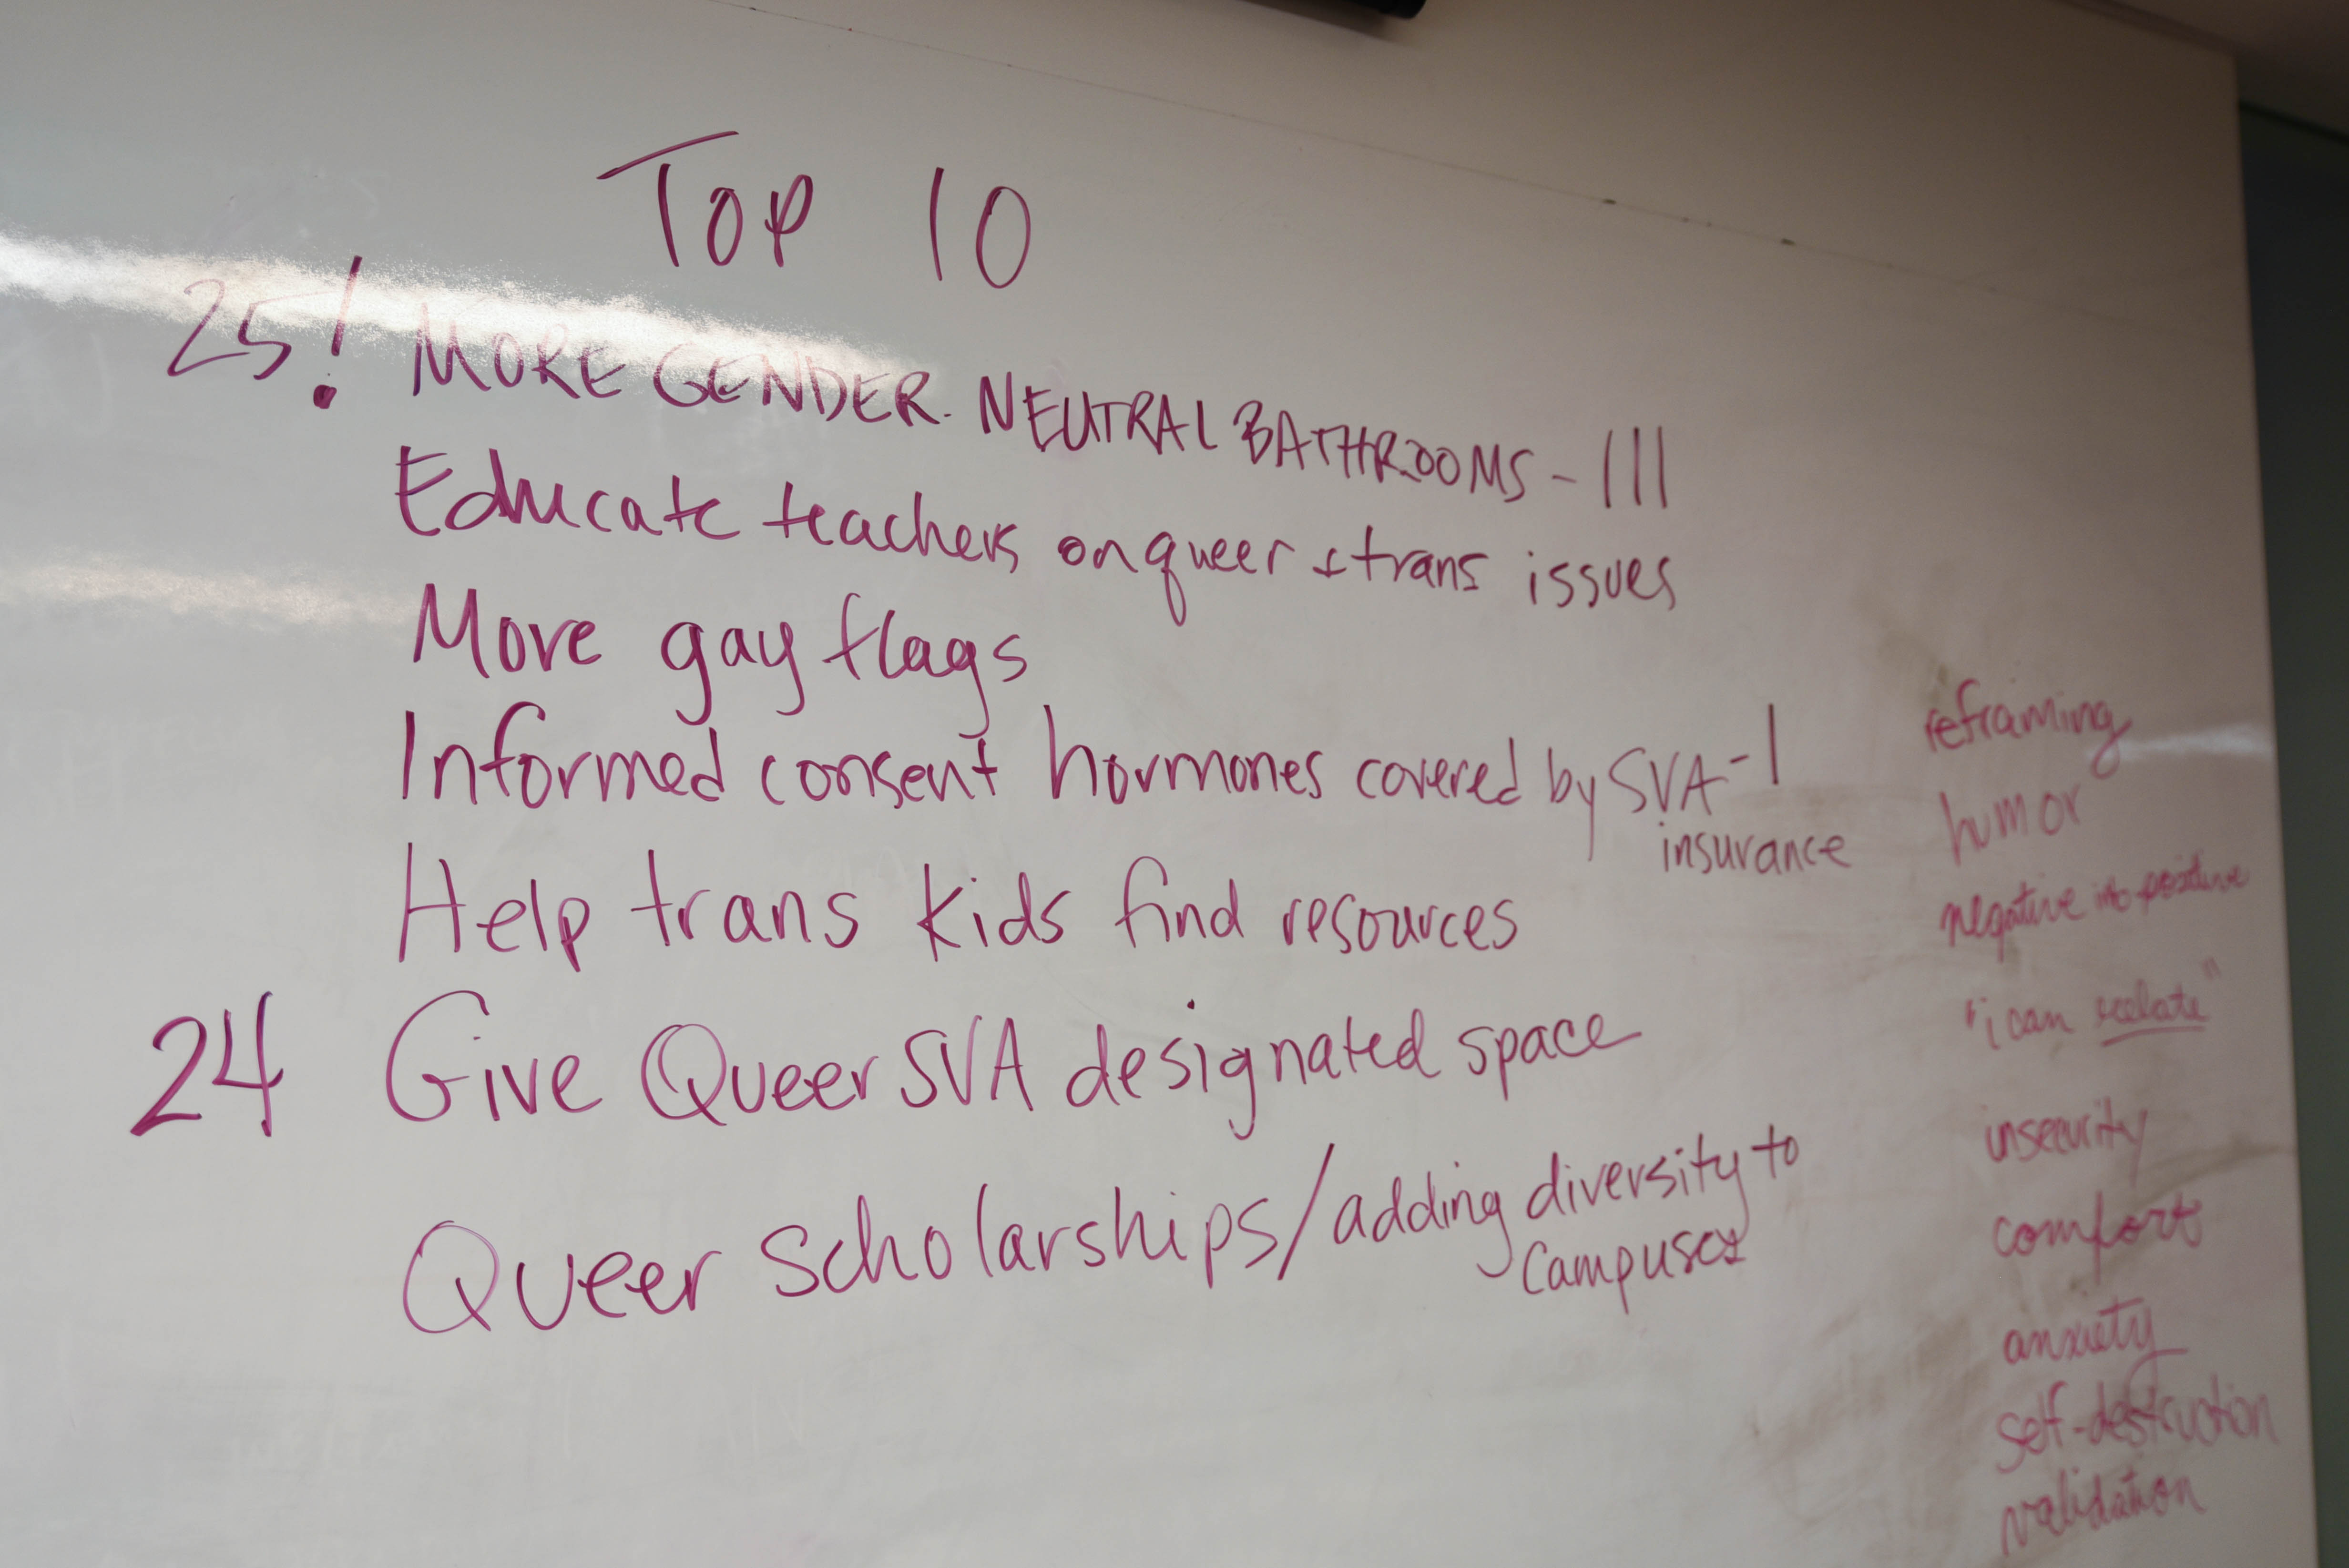 TOP 10
25! MORE GENDER-NEUTRAL BATHROOMS - III
Educate teachers on queer + trans issues
More gay flags
Informed consent hormones covered by SVA - I
insurance
Help trans kids find resources
24 Give Queer SVA designated space
Queer scholarships/adding diversity to
campuses
reframing
humor
negative into positive
"i can relate"
insecurity
comfort
anxiety
self-destruction
validation